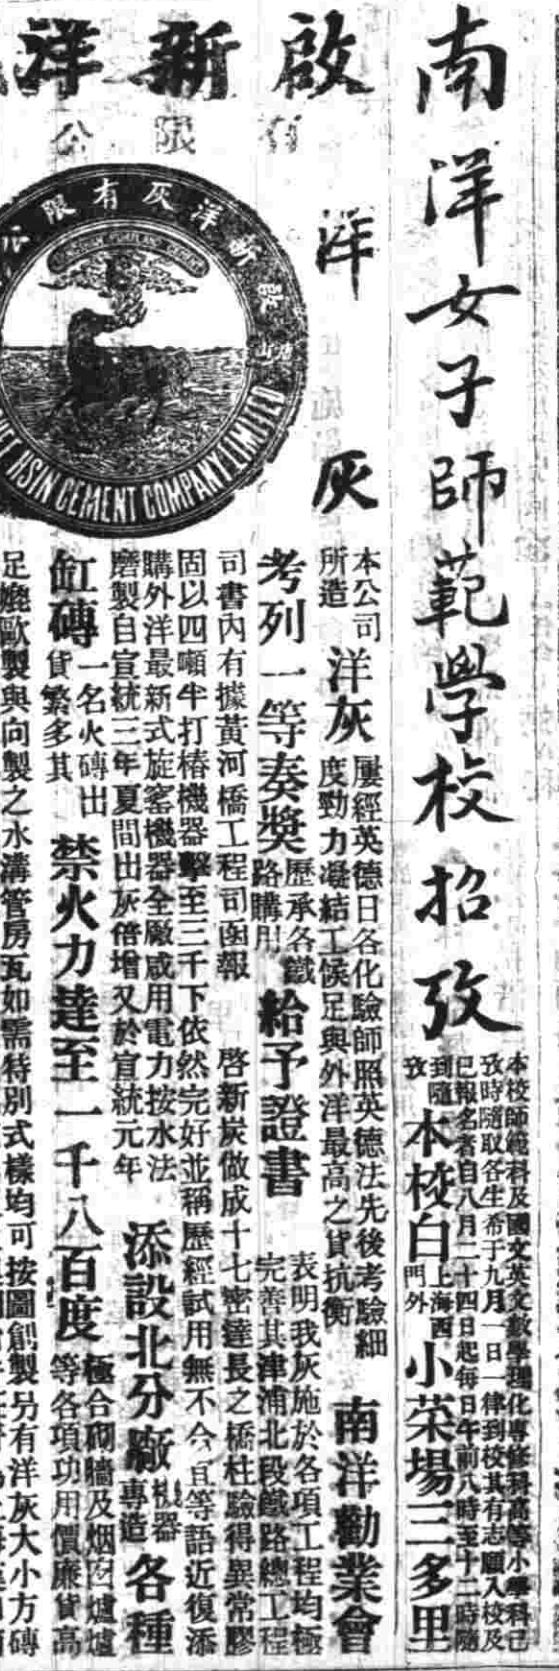 南洋女子師範學校招攷
本校師範科及國文英文數學理化專修科高等小學科已
攷時隨取各生希于九月一日一律到校其有志願入校及
已報名者自八月二十四日起每日午前八時至十二時隨
到隨
攷
本校白
上海西
門外
小菜場三多里
啟新洋
限公
洋灰
新洋灰有限
HSIN CEMENT COMPANY LIMITED
本公司
所造
洋灰
屢經英德日各化驗師照英德法先後考驗細
度勁力凝結工候足與外洋最高之貨抗衡
南洋勸業會
考列一等奏獎
歷承各鐵
路購用
給予證書
表明我灰施於各項工程均極
完善其津浦北段鐵路總工程
司書內有據黃河橋工程司函報
啓新炭做成十七密達長之橋柱驗得異常膠
固以四噸半打樁機器擊至三千下依然完好並稱歷經試用無不合宜等語近復添
購外洋最新式旋窰機器全廠咸用電力按水法
磨製自宣統三年夏間出灰倍增又於宣統元年
添設北分廠
機器
專造
各種
缸磚
一名火磚出
貨繁多其
禁火力達至一千八百度
極合砌牆及烟囱爐爐
等各項功用價廉貨高
足媲歐製與向製之水溝管房瓦如需特別式樣均可按圖創製另有洋灰大小方磚